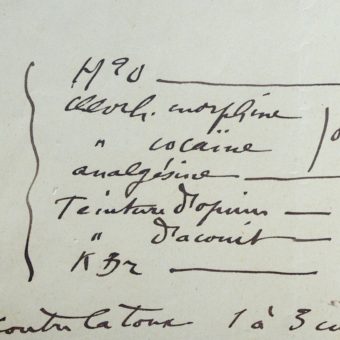 H²O
Chlorh. morphine
" cocaïne
analgésine
Teinture d'opium
" d'aconit
KBr
contre la toux 1 à 3